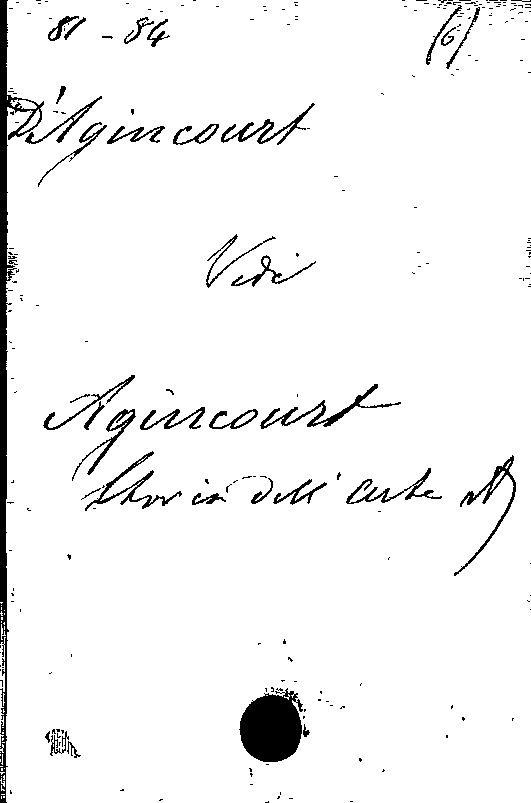 81 - 84 (6)
D'Agincourt
Vedi
Agincourt
Storia dell' arte